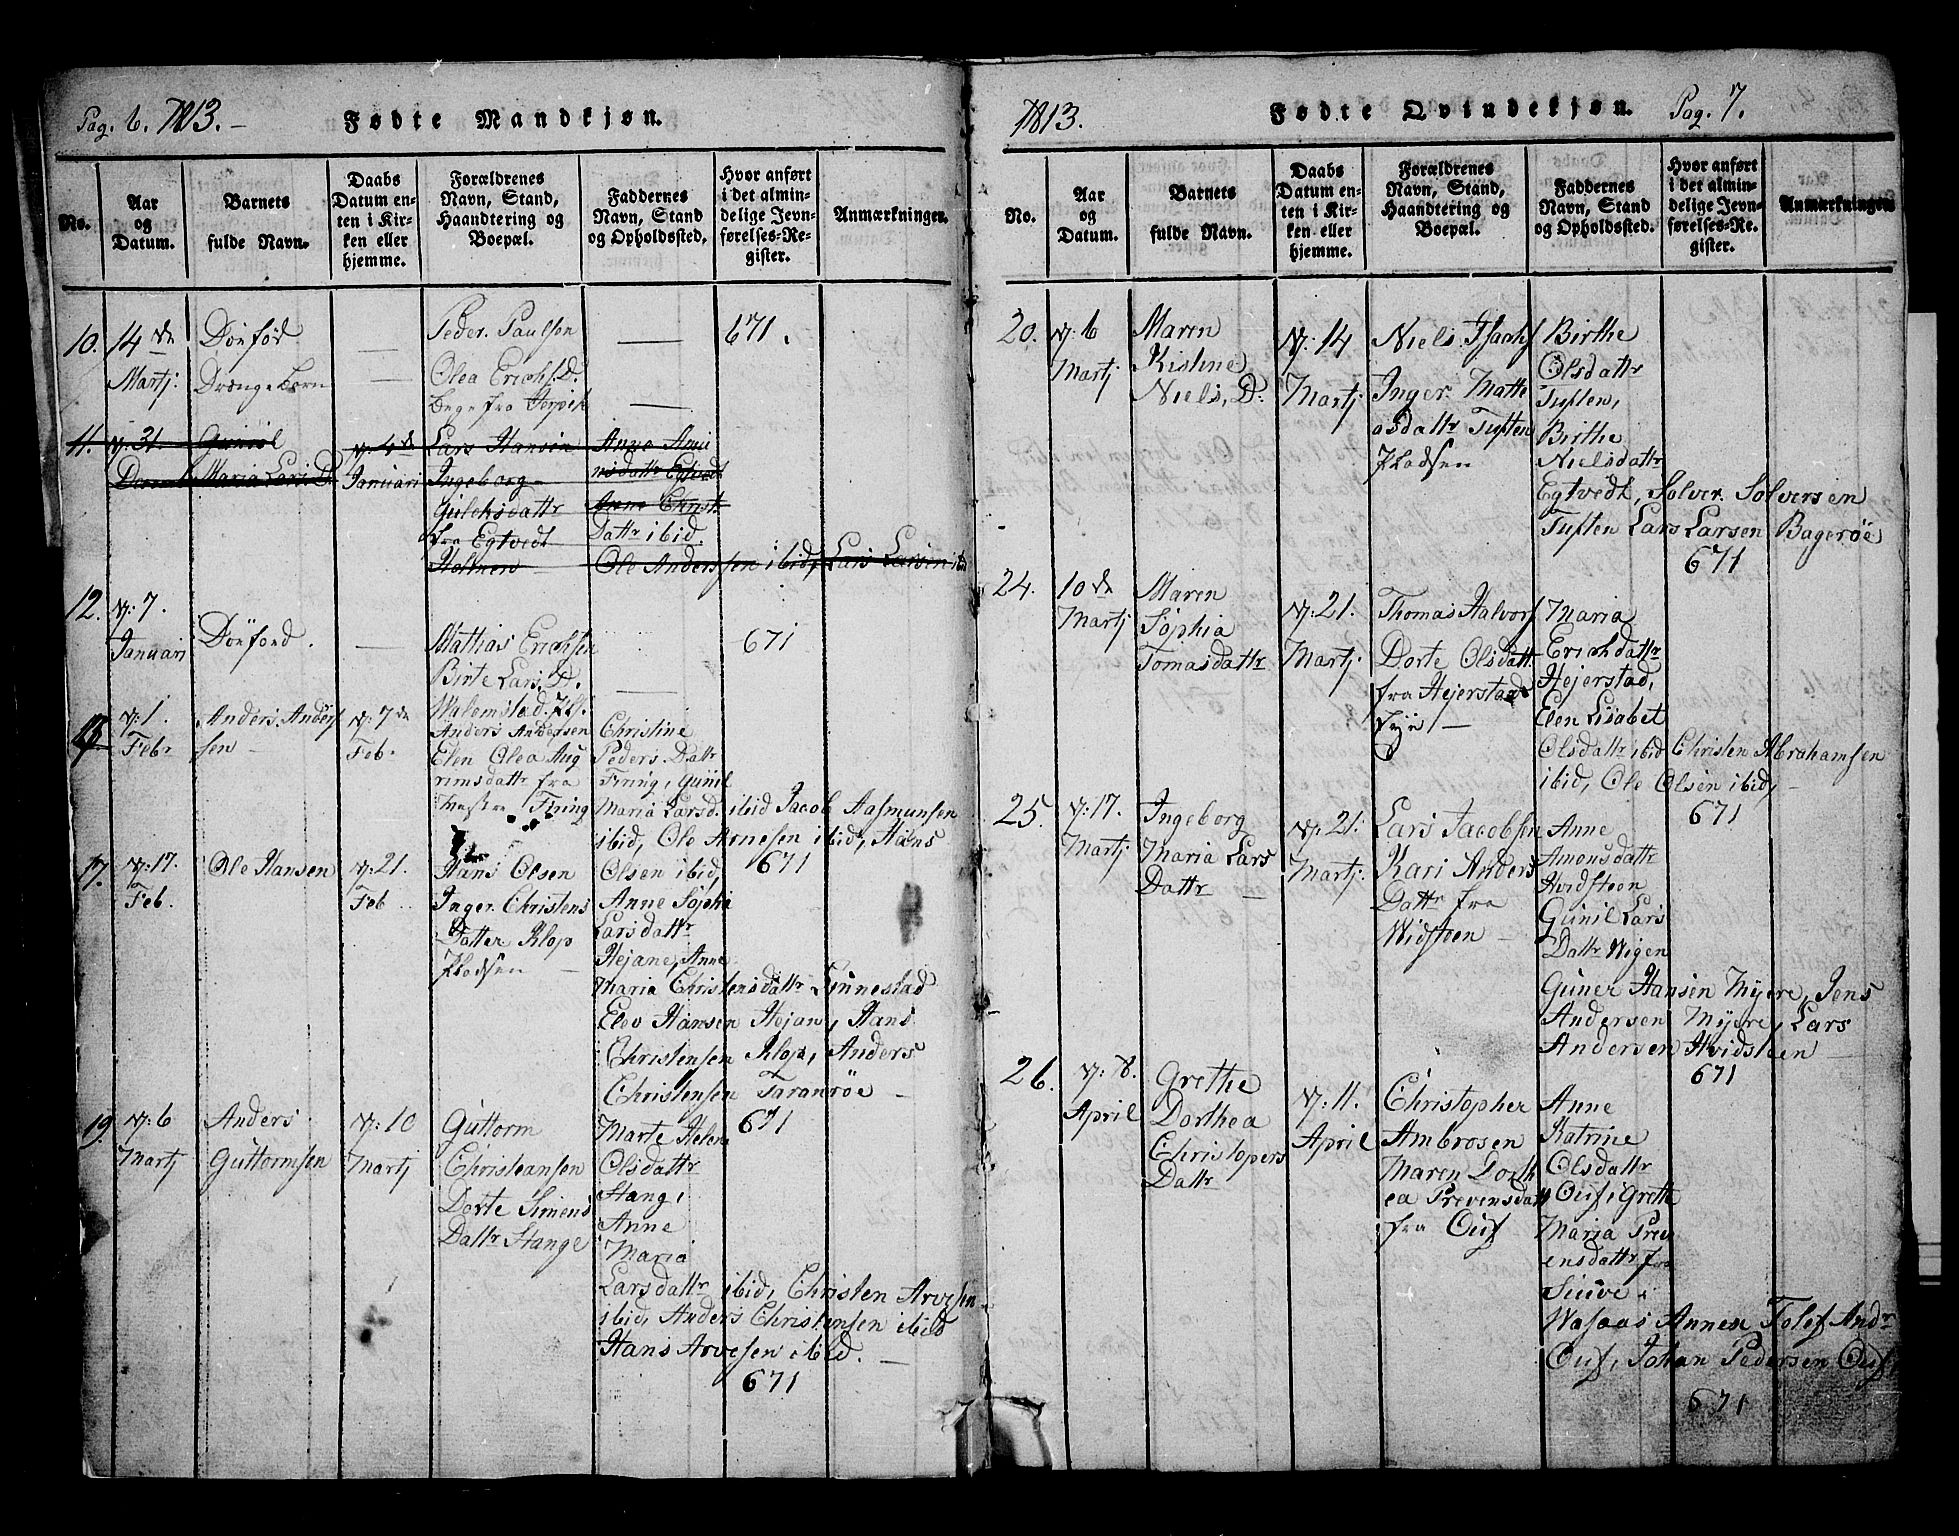 Pag. 6. 1813. –
Fødte Mandkjøn.
No.
Aar og Datum.
Barnets fulde Navn.
Daabs Datum enten i Kirken eller hjemme.
Forældrenes Navn, Stand, Haandtering og Boepæl.
Faddernes Navn, Stand og Opholdssted.
Hvor anført i det almindelige Jevnførelses-Register.
Anmærkninger.
10. 14 de Martj:
Dönföd
Drænge Barn
Peder. Paulsen
Olea Erichs. D.
671.
11. 31.
Maria Lars. D.
Januari
Lars Hansen
Ingeborg
fra Egtvedt
Holmen
Datt͞r ibid.
Ole Anderssen ibid, Lars Larsen ibid
12. 7. Januari
Dönfönd.
Mattias Erichsen
Birte Lars. D.
671
1. Febr
Anders. Anders
sen
7 de Feb.
Anders Andersen
Elen Olea Aug
rimsdattr fra
Tining
Christine
Peders. Dattr
Tining, Gunil
Maria Larsd. ibid Jacob Aasmunsen
ibid, Ole Arnesen ibid, Hans
671
17. 17. Feb.
Ole Hansen
21. Feb
Hans Olsen
Inger. Christens
Datter Klop
Pladsen
Olsen ibid,
Anne Sophia
Larsdattr
Hejane, Anne
Maria Christensdattr Linnestad
Elev Hansen Hejan, Hans
Christensen Klop, Anders
Christensen Taranröe –
19. 6 Martj
Anders
Guttormsen
10 Martj
Guttorm
Christeansen
Dorte Simens
Dattr Stange
Marte Helene
Olsdattr
Stang,
Anne
Maria
Larsdattr ibid, Christen Arvesen
ibid, Anders Christensen ibid
Hans Arvesen ibid. –
671
671
1813.
Fødte Qvindekjøn.
Pag. 7.
No.
Aar og Datum.
Barnets fulde Navn.
Daabs Datum enten i Kirken eller hjemme.
Forældrenes Navn, Stand, Haandtering og Boepæl.
Faddernes Navn, Stand og Opholdssted.
Hvor anført i det almindelige Jevnførelses-Register.
Anmærkninger.
20. 6 Martj
Maren
Kistine
Niels. D.
14 Martj
Niels. Isachs
Inger. Matte
osdattr Tuften
Pladsen
Birthe
Olsdattr
Tuften,
Birthe
Nielsdattr
Egtvedt, Solver. Solversen
Tuften Lars Larsen Bageröe
671
24. 10 de Martj
Maren
Sophia
Tomasdattr
21. Martj.
Thomas Halvors
Dorte Olsdatt
fra Hejerstad
Maria
Erichdattr
Hejerstad,
Elen Lisabet
Olsdattr ibid Christen Abrahamsen
ibid, Ole Olsen ibid, –
671
25. 17. Martj
Ingeborg
Maria Lars
Dattr
21. Martj.
Lars Jacobsen
Kari Anders
Dattr fra
Widsteen
Anne
Amonsdattr
Hvidsteen
Gunil Lars
Dattr Wigen
Guner Hansen Myere, Jens
Andersen Myere, Lars
Andersen Hvidsteen
671
26. 8. April
Grethe
Dorthea
Christopers
Dattr
11. April
Christopher
Ambrosen
Maren Dorth
ea Prevensdatt
fra Ouf
Anne
Katrine
Olsdattr
Ouf, Grethe
Maria Prev
ensdattr fra
Wasaas Annen Tolef Andr
Ouf, Johan Pedersen Ouf,
671